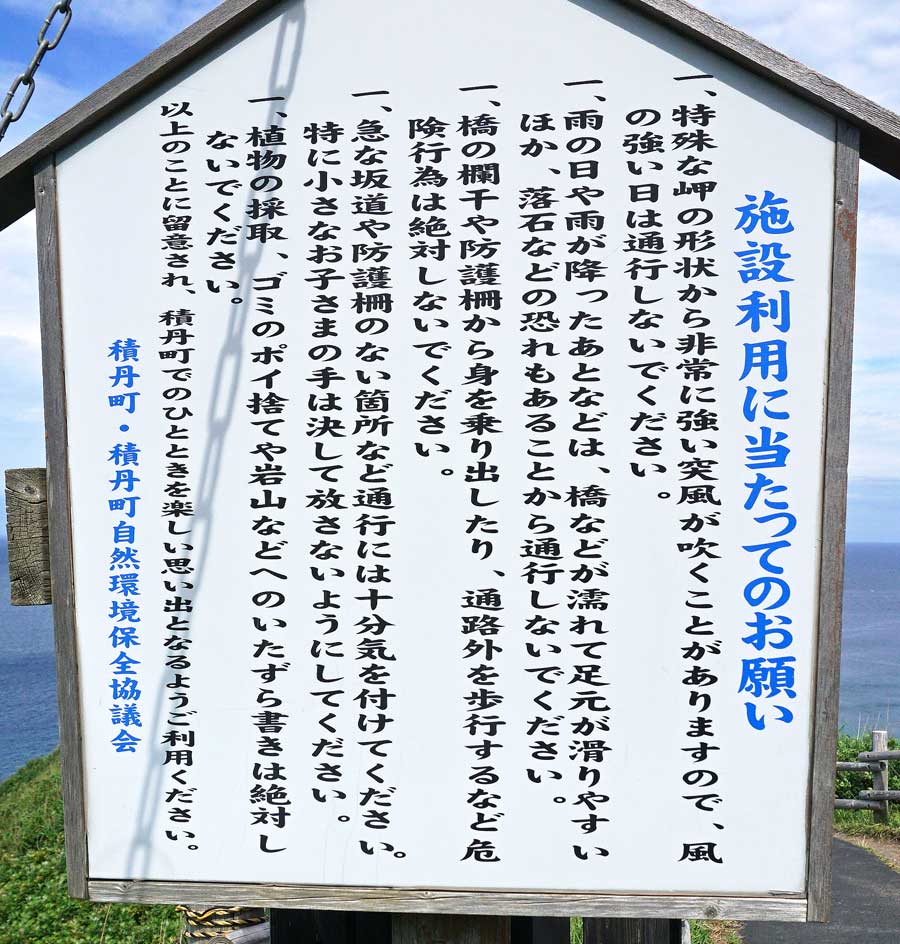 施設利用に当たってのお願い
一、特殊な岬の形状から非常に強い突風が吹くことがありますので、風
の強い日は通行しないでください。
一、雨の日や雨が降ったあとなどは、橋などが濡れて足元が滑りやすい
ほか、落石などの恐れもあることから通行しないでください。
一、橋の欄干や防護柵から身を乗り出したり、通路外を歩行するなど危
険行為は絶対しないでください。
一、急な坂道や防護柵のない箇所など通行には十分気を付けてください。
特に小さなお子さまの手は決して放さないようにしてください。
一、植物の採取、ゴミのポイ捨てや岩山などへのいたずら書きは絶対し
ないでください。
以上のことに留意され、積丹町でのひとときを楽しい思い出となるようご利用ください。
積丹町・積丹町自然環境保全協議会